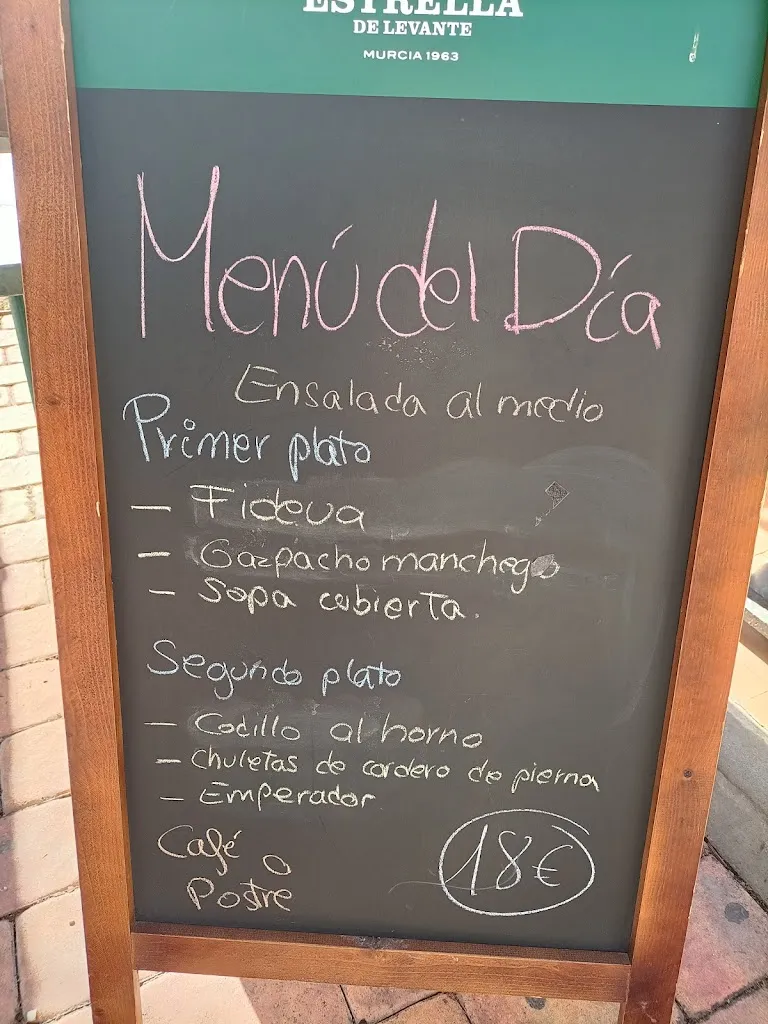 ESTRELLA
DE LEVANTE
MURCIA 1963
Menú del Día
Ensalada al medio
Primer plato
- Fideua
- Gazpacho manchego
- Sopa cubierta.
Segundo plato
- Codillo al horno
- Chuletas de cordero de pierna
- Emperador
Café o
Postre
18€